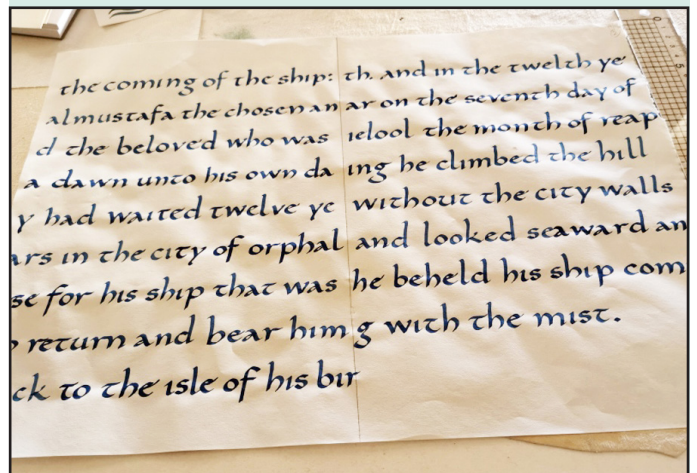 the coming of the ship:
almustafa the chosen an
d the beloved who was
a dawn unto his own da
y had waited twelve ye
ars in the city of orphal
se for his ship that was
return and bear him
ck to the isle of his bir
th. and in the twelth ye
ar on the seventh day of
ielool the month of reap
ing he climbed the hill
without the city walls
and looked seaward an
he beheld his ship com
g with the mist.